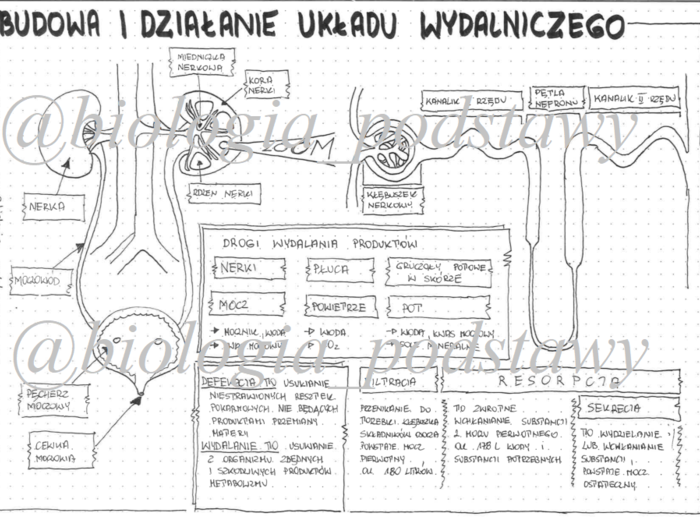 BUDOWA I DZIAŁANIE UKŁADU WYDALNICZEGO
MIEDNICZKA
NERKOWA
KORA
NERKI
KANALIK I RZĘDU
PĘTLA
NEFRONU
KANALIK II RZĘDU
@biologia_podstawy
ZOOM
NERKA
RDZEŃ NERKI
KŁĘBUSZEK
NERKOWY
MOCZOWÓD
DROGI WYDALANIA PRODUKTÓW
NERKI
PŁUCA
GRUCZOŁY POTOWE
W SKÓRZE
MOCZ
POWIETRZE
POT
MOCZNIK, WODA
WODA
WODA, KWAS MOCZOWY
@biologia_podstawy
SOLE MINERALNE
PĘCHERZ
MOCZOWY
CEWKA
MOCZOWA
DEFEKACJA TO USUWANIE
NIESTRAWIONYCH RESZTEK
POKARMOWYCH NIE BĘDĄCYCH
PRODUKTAMI PRZEMIANY
MATERII
WYDALANIE TO USUWANIE
Z ORGANIZMU ZBĘDNYCH
I SZKODLIWYCH PRODUKTÓW
METABOLIZMU
FILTRACJA
PRZENIKANIE DO
TOREBKI KŁĘBUSZKA
SKŁADNIKÓW OSOCZA
POWSTAJE MOCZ
PIERWOTNY
OK. 180 LITRÓW
RESORPCJA
TO ZWROTNE
WCHŁANIANIE SUBSTANCJI
Z MOCZU PIERWOTNEGO
OK. 178 L WODY I
SUBSTANCJI POTRZEBNYCH
SEKRECJA
TO WYDZIELANIE I
LUB WCHŁANIANIE
SUBSTANCJI I
POWSTAJE MOCZ
OSTATECZNY